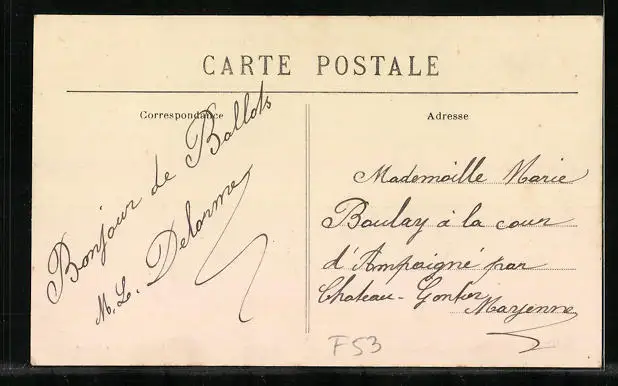 CARTE POSTALE
Correspondance
Bonjour de Ballots
M. L. Delorme
Adresse
Mademoille Marie
Boulay à la cour
d'Ampoigné par
Chateau-Gontier
Mayenne
F53